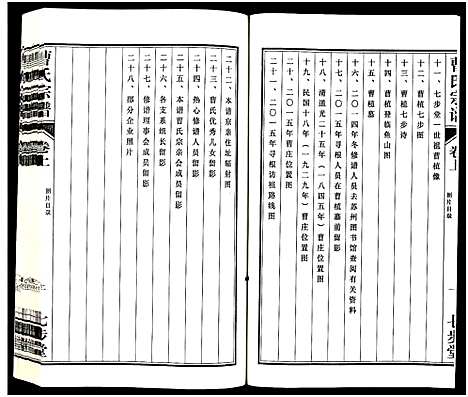 曹氏宗谱
卷上
照片目录
一
七步堂
十一、七步堂一世祖曹植像
十二、曹植七步图
十三、曹植七步诗
十四、曹植登临鱼山图
十五、曹植墓
十六、二〇一五年寻根人员在曹植墓前留影
十七、二〇一四年冬修谱人员去苏州图书馆查阅有关资料
十八、清道光二十五年（一八四五年）曹庄位置图
十九、民国十八年（一九二九年）曹庄位置图
二十、二〇一五年曹庄位置图
二十一、二〇一五年寻根访祖路线图
二十二、本谱宗亲住址辐射图
二十三、曹氏优秀儿女留影
二十四、热心修谱人员留影
二十五、本谱曹氏宗亲会成员留影
二十六、各支系组长留影
二十七、修谱理事会成员留影
二十八、部分企业照片
曹氏宗谱
卷上
照片目录
二
七步堂